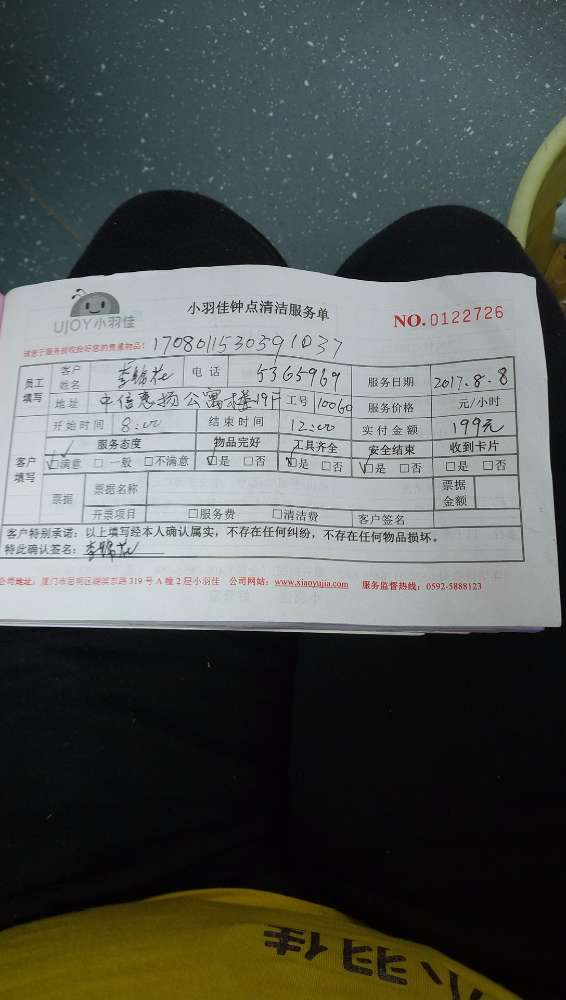 UJOY小羽佳
小羽佳钟点清洁服务单
NO.0122726
请您于服务前收拾好您的贵重物品!
1708011530591037
员工填写 客户姓名 李锦花 电话 5365969 服务日期 2017.8.8
地址 中信惠扬公寓楼19F 工号 10060 服务价格 元/小时
开始时间 8:00 结束时间 12:00 实付金额 199元
客户填写 服务态度 物品完好 工具齐全 安全结束 收到卡片
☑满意 □一般 □不满意 ☑是 □否 ☑是 □否 ☑是 □否 □是 □否
票据 票据名称 票据金额
开票项目 □服务费 □清洁费 客户签名
客户特别承诺:以上填写经本人确认属实,不存在任何纠纷,不存在任何物品损坏。
特此确认签名:李锦花
公司地址:厦门市思明区湖滨东路319号A幢2层小羽佳 公司网站:www.xiaoyujia.com 服务监督热线:0592-5888123
小羽佳